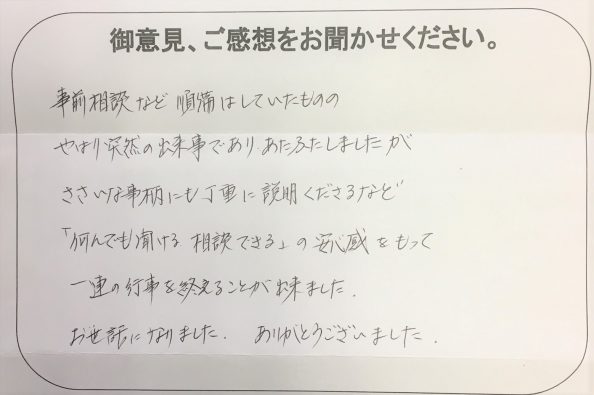 御意見、ご感想をお聞かせください。
事前相談など 準備はしていたものの
やはり突然の出来事であり あたふたしましたが
ささいな事柄にも丁重に説明くださるなど
「何んでも聞ける 相談できる」の安心感をもって
一連の行事を終えることが出来ました.
お世話になりました. ありがとうございました.